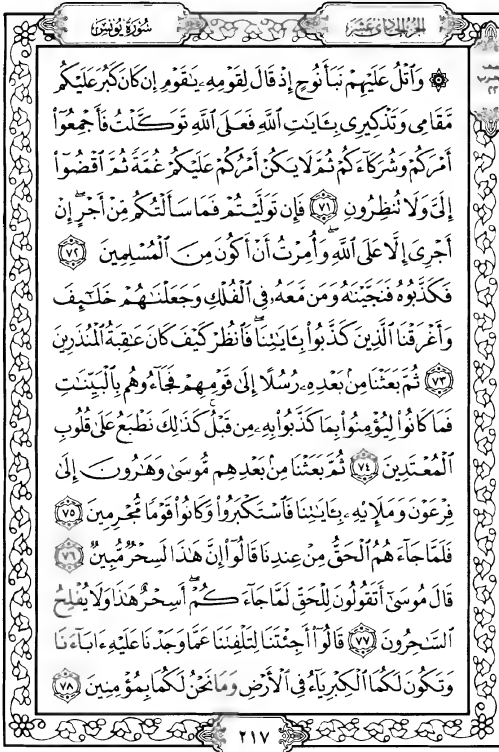 سُورَةُ يُونُسَ
الجُزْءُ الحَادِيَ عَشَرَ
۞ وَٱتْلُ عَلَيْهِمْ نَبَأَ نُوحٍ إِذْ قَالَ لِقَوْمِهِۦ يَٰقَوْمِ إِن كَانَ كَبُرَ عَلَيْكُم
مَّقَامِى وَتَذْكِيرِى بِـَٔايَٰتِ ٱللَّهِ فَعَلَى ٱللَّهِ تَوَكَّلْتُ فَأَجْمِعُوٓا۟
أَمْرَكُمْ وَشُرَكَآءَكُمْ ثُمَّ لَا يَكُنْ أَمْرُكُمْ عَلَيْكُمْ غُمَّةً ثُمَّ ٱقْضُوٓا۟
إِلَىَّ وَلَا تُنظِرُونِ ٧١ فَإِن تَوَلَّيْتُمْ فَمَا سَأَلْتُكُم مِّنْ أَجْرٍ ۖ إِنْ
أَجْرِىَ إِلَّا عَلَى ٱللَّهِ ۖ وَأُمِرْتُ أَنْ أَكُونَ مِنَ ٱلْمُسْلِمِينَ ٧٢
فَكَذَّبُوهُ فَنَجَّيْنَٰهُ وَمَن مَّعَهُۥ فِى ٱلْفُلْكِ وَجَعَلْنَٰهُمْ خَلَٰٓئِفَ
وَأَغْرَقْنَا ٱلَّذِينَ كَذَّبُوا۟ بِـَٔايَٰتِنَا ۖ فَٱنظُرْ كَيْفَ كَانَ عَٰقِبَةُ ٱلْمُنذَرِينَ
٧٣ ثُمَّ بَعَثْنَا مِنۢ بَعْدِهِۦ رُسُلًا إِلَىٰ قَوْمِهِمْ فَجَآءُوهُم بِٱلْبَيِّنَٰتِ
فَمَا كَانُوا۟ لِيُؤْمِنُوا۟ بِمَا كَذَّبُوا۟ بِهِۦ مِن قَبْلُ ۚ كَذَٰلِكَ نَطْبَعُ عَلَىٰ قُلُوبِ
ٱلْمُعْتَدِينَ ٧٤ ثُمَّ بَعَثْنَا مِنۢ بَعْدِهِم مُّوسَىٰ وَهَٰرُونَ إِلَىٰ
فِرْعَوْنَ وَمَلَإِي۟هِۦ بِـَٔايَٰتِنَا فَٱسْتَكْبَرُوا۟ وَكَانُوا۟ قَوْمًا مُّجْرِمِينَ ٧٥
فَلَمَّا جَآءَهُمُ ٱلْحَقُّ مِنْ عِندِنَا قَالُوٓا۟ إِنَّ هَٰذَا لَسِحْرٌ مُّبِينٌ ٧٦
قَالَ مُوسَىٰٓ أَتَقُولُونَ لِلْحَقِّ لَمَّا جَآءَكُمْ ۖ أَسِحْرٌ هَٰذَا وَلَا يُفْلِحُ
ٱلسَّٰحِرُونَ ٧٧ قَالُوٓا۟ أَجِئْتَنَا لِتَلْفِتَنَا عَمَّا وَجَدْنَا عَلَيْهِ ءَابَآءَنَا
وَتَكُونَ لَكُمَا ٱلْكِبْرِيَآءُ فِى ٱلْأَرْضِ وَمَا نَحْنُ لَكُمَا بِمُؤْمِنِينَ ٧٨
٢١٧